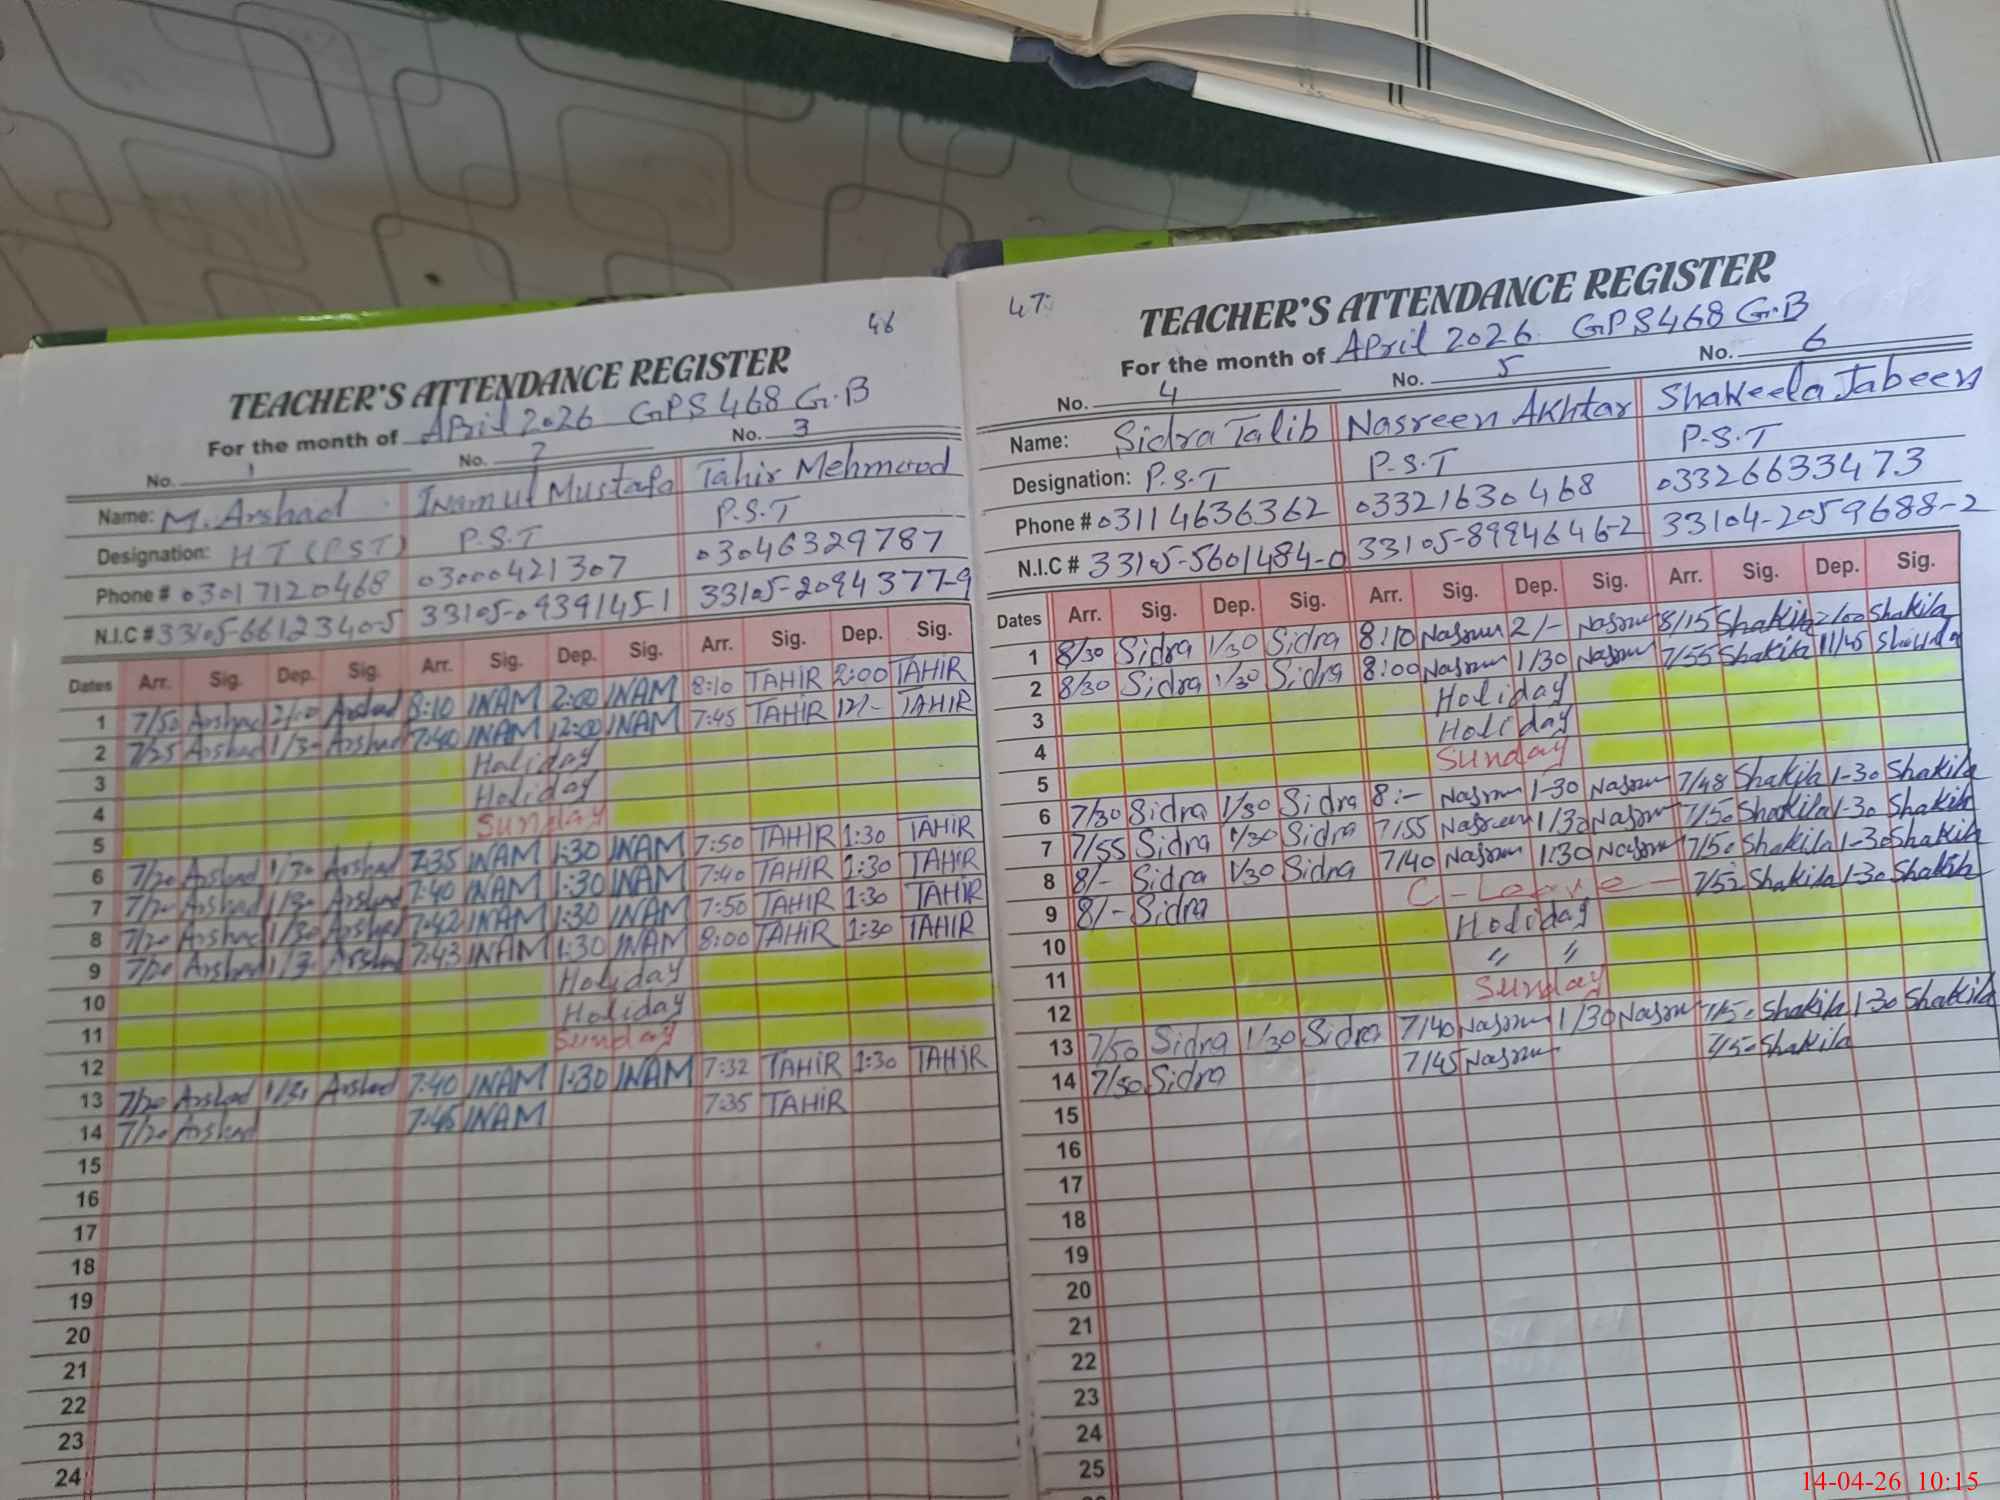 46
TEACHER'S ATTENDANCE REGISTER
For the month of April 2026 GPS 468 G.B
No. 1 No. 2 No. 3
Name: M. Arshad Inamul Mustafa Tahir Mehmood
Designation: H T (PST) P.S.T P.S.T
Phone # 03017120468 03000421307 03046329787
N.I.C # 33105-6612340-5 33105-0939145-1 33105-2094377-9
Dates Arr. Sig. Dep. Sig. Arr. Sig. Dep. Sig. Arr. Sig. Dep. Sig.
1 7/50 Arshad Arshad 8:10 INAM 2:00 INAM 8:10 TAHIR 2:00 TAHIR
2 7/25 Arshad 1/30 Arshad 7:40 INAM 12:00 INAM 7:45 TAHIR 12/- TAHIR
3 Holiday
4 Holiday
5 Sunday
6 7/20 Arshad 1/30 Arshad 7:35 INAM 1:30 INAM 7:50 TAHIR 1:30 TAHIR
7 7/20 Arshad 1/30 Arshad 7:40 INAM 1:30 INAM 7:40 TAHIR 1:30 TAHIR
8 7/20 Arshad 1/30 Arshad 7:42 INAM 1:30 INAM 7:50 TAHIR 1:30 TAHIR
9 7/20 Arshad 1/30 Arshad 7:43 INAM 1:30 INAM 8:00 TAHIR 1:30 TAHIR
10 Holiday
11 Holiday
12 Sunday
13 7/20 Arshad 1/30 Arshad 7:40 INAM 1:30 INAM 7:32 TAHIR 1:30 TAHIR
14 7/20 Arshad 7:45 INAM 7:35 TAHIR
15
16
17
18
19
20
21
22
23
24
47
TEACHER'S ATTENDANCE REGISTER
For the month of April 2026 GPS 468 G.B
No. 4 No. 5 No. 6
Name: Sidra Talib Nasreen Akhtar Shakeela Jabeen
Designation: P.S.T P.S.T P.S.T
Phone # 03114636362 03321630468 03326633473
N.I.C # 33105-5601484-0 33105-8994646-2 33104-2059688-2
Dates Arr. Sig. Dep. Sig. Arr. Sig. Dep. Sig. Arr. Sig. Dep. Sig.
1 8/30 Sidra 1/30 Sidra 8:10 Nasreen 2/- Nasreen 8/15 Shakila 2/00 Shakila
2 8/30 Sidra 1/30 Sidra 8:00 Nasreen 1/30 Nasreen 7/55 Shakila 11/45 Shakila
3 Holiday
4 Holiday
5 Sunday
6 7/30 Sidra 1/30 Sidra 8:- Nasreen 1-30 Nasreen 7/48 Shakila 1-30 Shakila
7 7/55 Sidra 1/30 Sidra 7/55 Nasreen 1/30 Nasreen 7/50 Shakila 1-30 Shakila
8 8/- Sidra 1/30 Sidra 7/40 Nasreen 1:30 Nasreen 7/50 Shakila 1-30 Shakila
9 8/- Sidra C-Leave 7/52 Shakila 1-30 Shakila
10 Holiday
11 〃 〃
12 Sunday
13 7/50 Sidra 1/30 Sidra 7/40 Nasreen 1/30 Nasreen 7/50 Shakila 1-30 Shakila
14 7/50 Sidra 7/45 Nasreen 7/50 Shakila
15
16
17
18
19
20
21
22
23
24
25
14-04-26 10:15